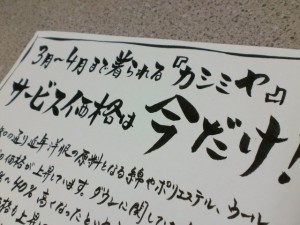 3月〜4月まで着られる『カシミヤ』
サービス価格は今だけ!
知の通り近年洋服の原料となる綿やポリエステル、ウール
の価格が上昇しています。ダウンに関してい
〜40%高くなったと
上昇